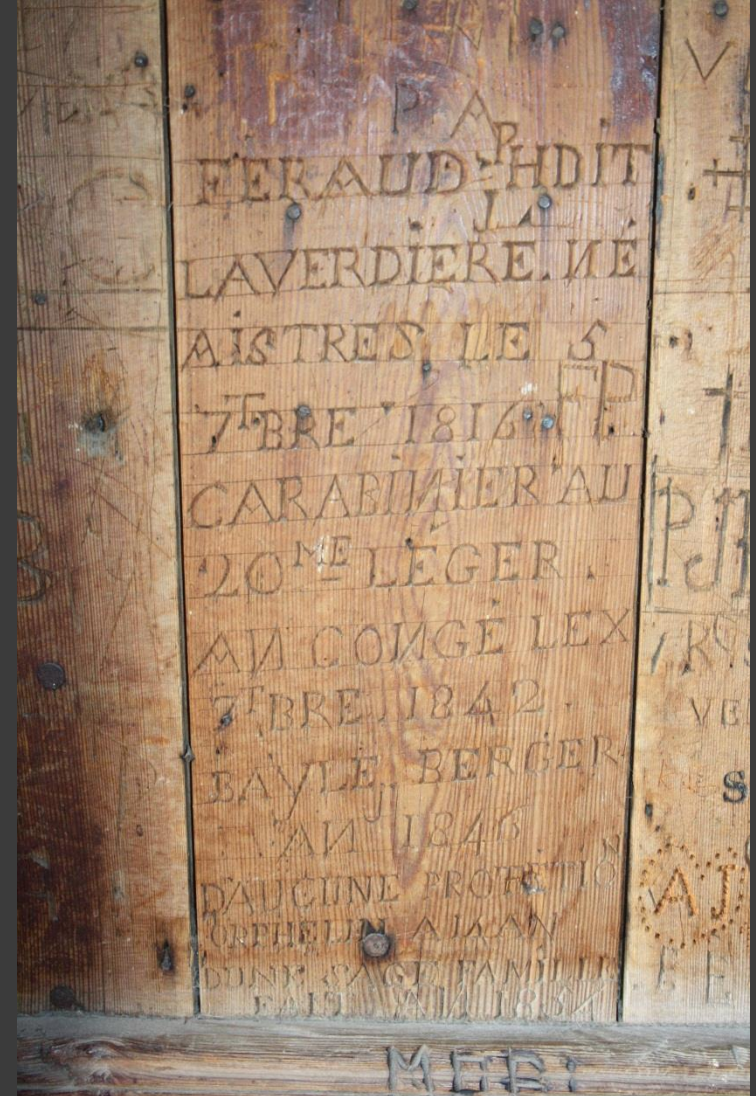 P A
FERAUD PH DIT
LA
LAVERDIERE. NÉ
AISTRES LE 5
7TBRE 1816
FP
CARABINIER AU
20ME LÉGER.
AN CONGÉ LEX
7TBRE. 1842.
BAYLE BERGER
AN 1846
D'AUCUNE PROTETION
ORPHELIN
DUNE FAMILLE
FAIT AN
V
PJ
VE
S
AJ
BE
MOBI